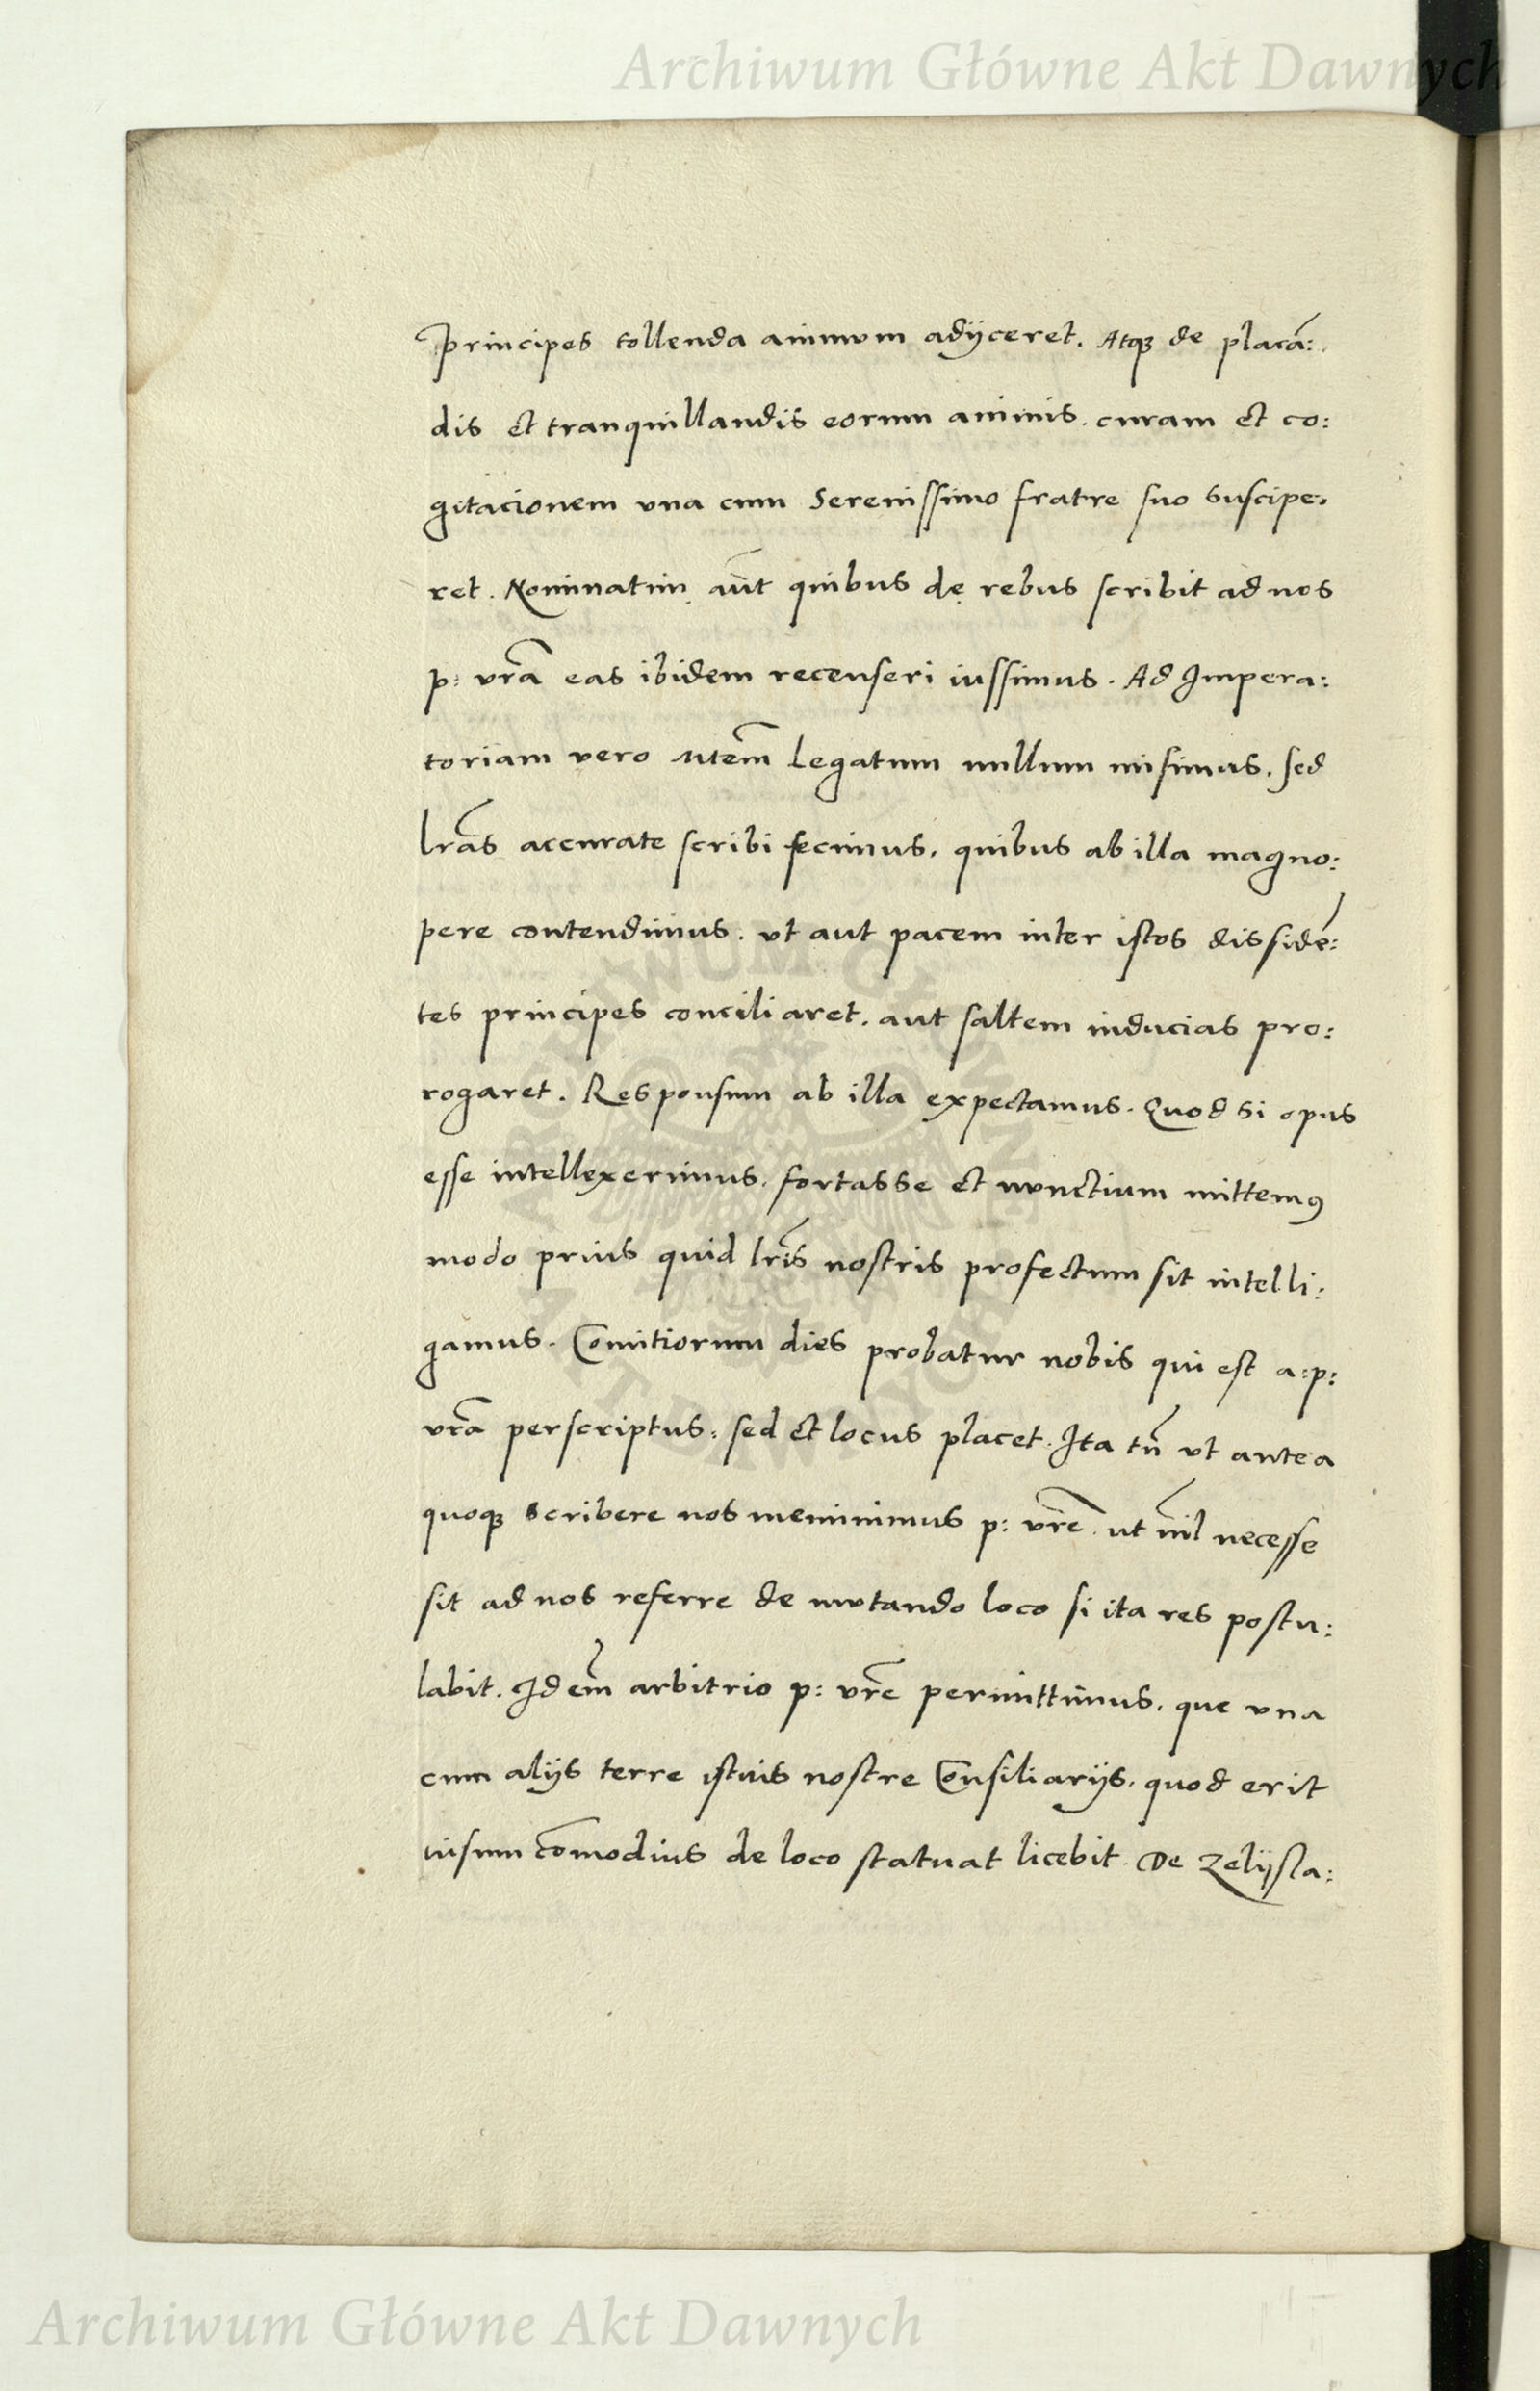 Archiwum Główne Akt Dawnych
principes tollenda animum adijceret. Atqꝫ de placā:
dis et tranquillandis eorum animis. curam et co:
gitacionem vna cum Serenissimo fratre suo suscipe,
ret. Nominatim aūt quibus de rebus scribit ad nos
p: vrā eas ibidem recenseri iussimus. Ad Impera:
toriam vero Mtem̄ legatum nullum misimus. sed
lrās accurate scribi fecimus. quibus ab illa magno:
pere contendimus. vt aut pacem inter istos dissidē:
tes principes conciliaret. aut saltem inducias pro:
rogaret. Responsum ab illa expectamus. Quod si opus
esse intellexerimus. fortasse et nunctium mittemꝰ
modo prius quid lrīs nostris profectum sit intelli:
gamus. Comitiorum dies probatur nobis qui est a:p:
vrā perscriptus. sed et locus placet. Ita tn̄ vt antea
quoqꝫ scribere nos meminimus p: vrē. ut nil̄ necesse
sit ad nos referre de mutando loco si ita res postu:
labit. Id em̄ arbitrio p: vrē permittimus. que vna
cum alijs terre istius nostre Consiliarijs. quod erit
uisum cōmodius de loco statuat licebit. De Zelijsla:
Archiwum Główne Akt Dawnych